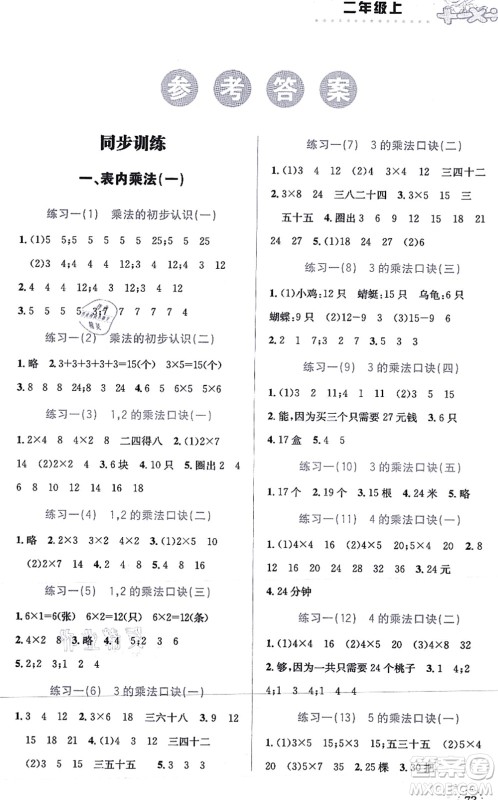 二年级上
参考答案
同步训练
一、表内乘法(一)
练习一(1) 乘法的初步认识(一)
1.(1)5 5;5 5 5 5 5 5 25
(2)3;4 12 3;4 12 4;3 12
2.4 4 8 12;4 3 12
3.5 5 5 5 5;7 7 7 7 7
练习一(2) 乘法的初步认识(二)
1.略 2.3+3+3+3+3=15(个) 3×5=15(个)
3.8 8 8 24;3 8 24 4.5 6 5×6
练习一(3) 1,2的乘法口诀(一)
1.2×4 8 2×4 8 二四得八 2.(1)2×7
14 (2)2×8 16 3.6块 4.10只 5.圈出2 4
6 8 10 12 14 16 18
练习一(4) 1,2的乘法口诀(二)
1.略 2.2×3 3×3 4×3 3.(1)2×5
10 (2)2×7 14 4.4 5 10
练习一(5) 1,2的乘法口诀(三)
1.6×1=6(张) 6×2=12(只) 6×2=12(条)
2.4×2 8 3.略 4.4×5 2×2
5.2 2;3;1 2 4
练习一(6) 3的乘法口诀(一)
1.3×6 18 3×6 18 三六十八 3.9 12
12 15 18 21 4.(1)2×3 6 (2)3×4
12 (3)3×5 15 5.3 3 3 3 3 3
练习一(7) 3的乘法口诀(二)
1.(1)3 4 12 (2)4 3 12 三四十二
2.3×8 24 三八二十四 3.3×5 15 三
五十五 4.圈出3 6 9 12 15 18 21
24 27 5.(1)18 (2)24
练习一(8) 3的乘法口诀(三)
1.(1)小鸡:12只 蜻蜓:15只 乌龟:6只
蝴蝶:9只 (2)12−9 3 (3)15−6 9
2.2 1 7;3 2 7 3.27 6
练习一(9) 3的乘法口诀(四)
1.(1)12 (2)15 (3)4 12
2.能,因为买三个只需要27元钱 3.6只
4.17盒 5.4 5
练习一(10) 3的乘法口诀(五)
1.17个 2.21个 3.15根 4.24米 5.24只
练习一(11) 4的乘法口诀(一)
1.(1)4×4 16 (2)4×5 20 2.4×5 20
4×5 20 四五二十 3.(1)4×4 16 (2)4×3 12
4.24分钟
练习一(12) 4的乘法口诀(二)
1.(1)4×4 16 (2)4×6 24 (3)4×5 20
2.够,因为一共只需要24个桃子 3.1 4;
4;1 4;2 4
练习一(13) 5的乘法口诀(一)
1.(1)5×3 15 5×3 15 三五十五
(2)5×5 25 2.35棵 3.30把